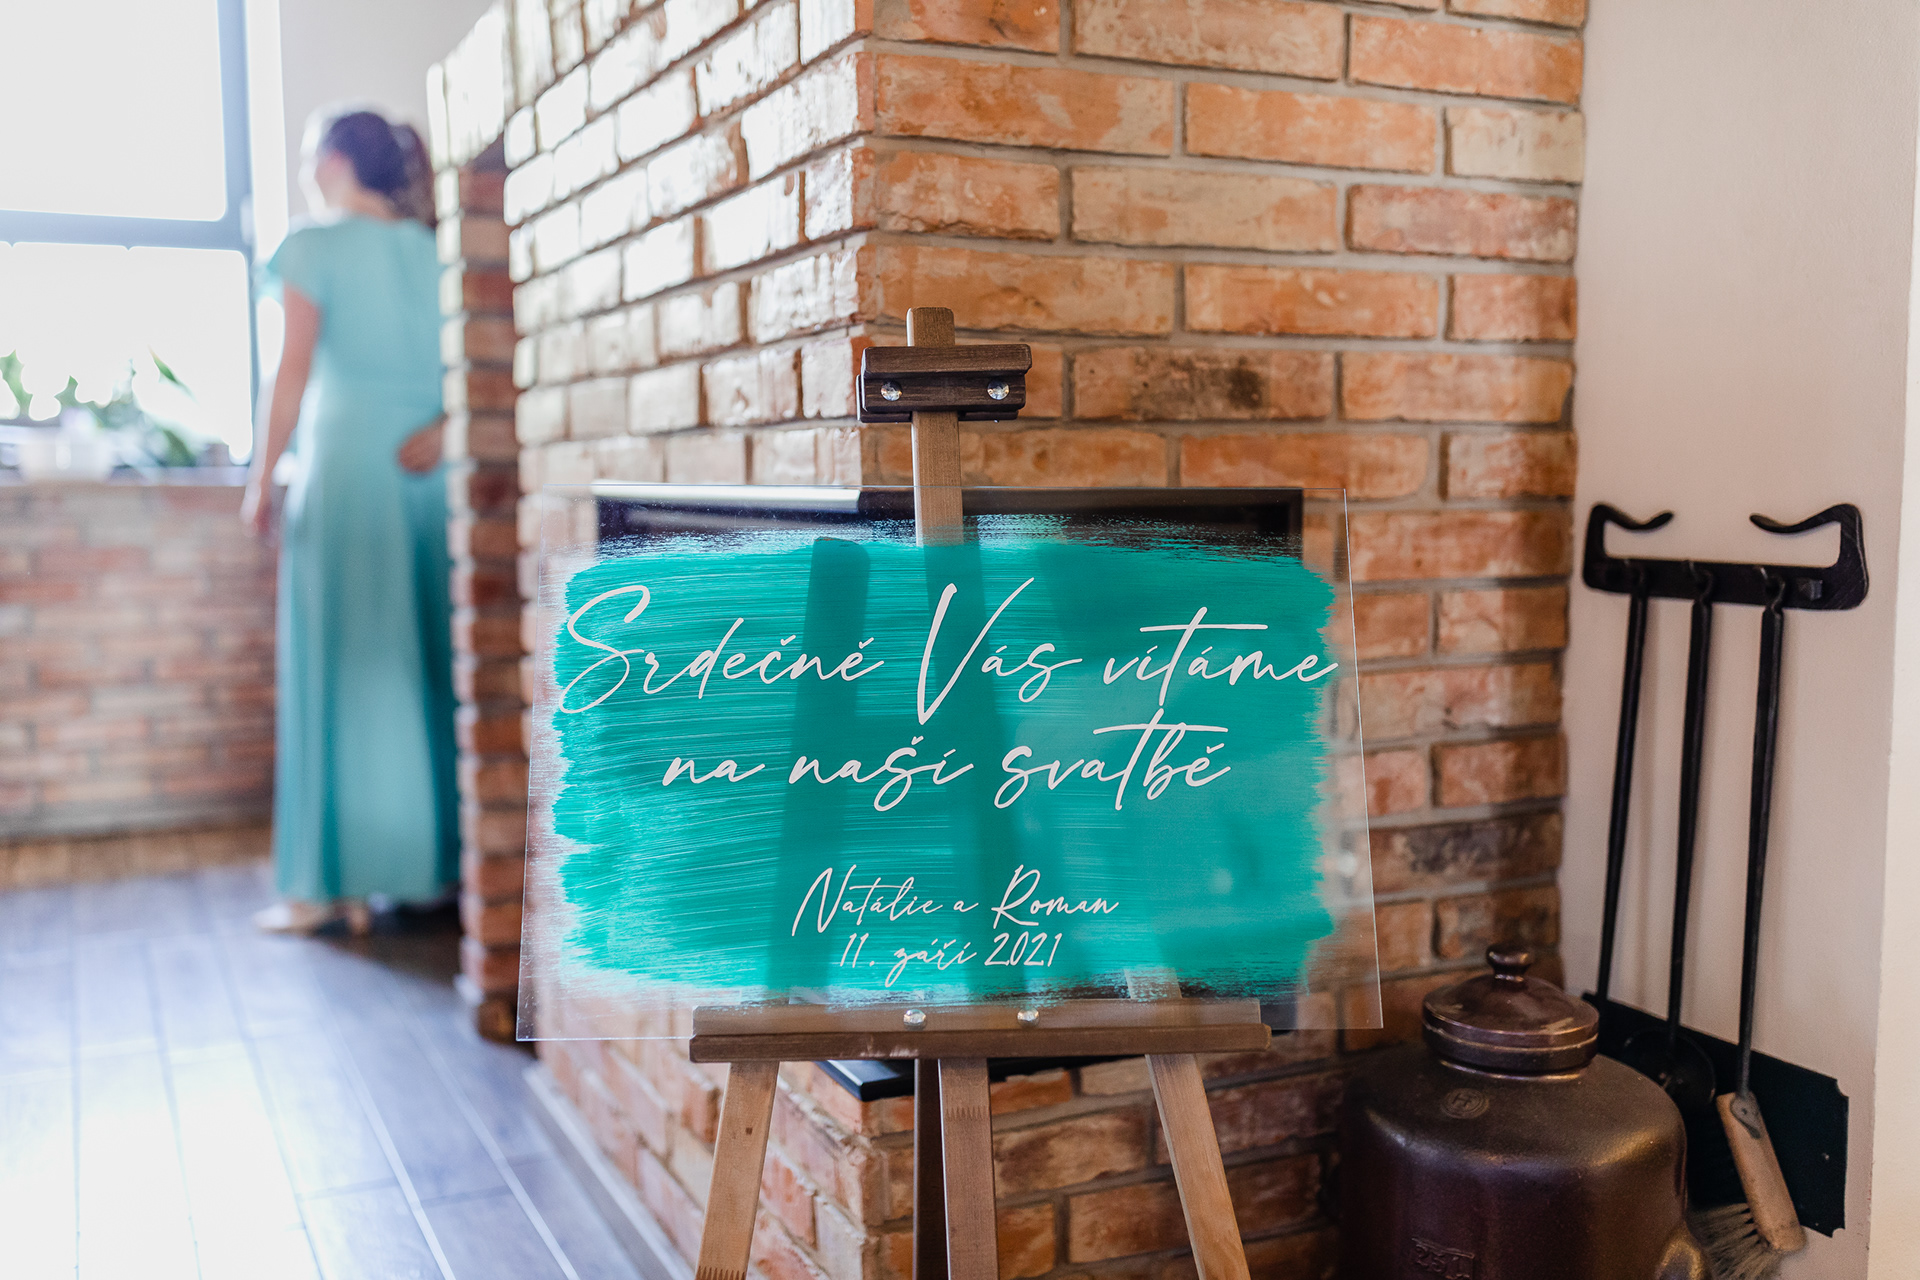 Srdečně Vás vítáme
na naší svatbě
Natálie a Roman
11. září 2021